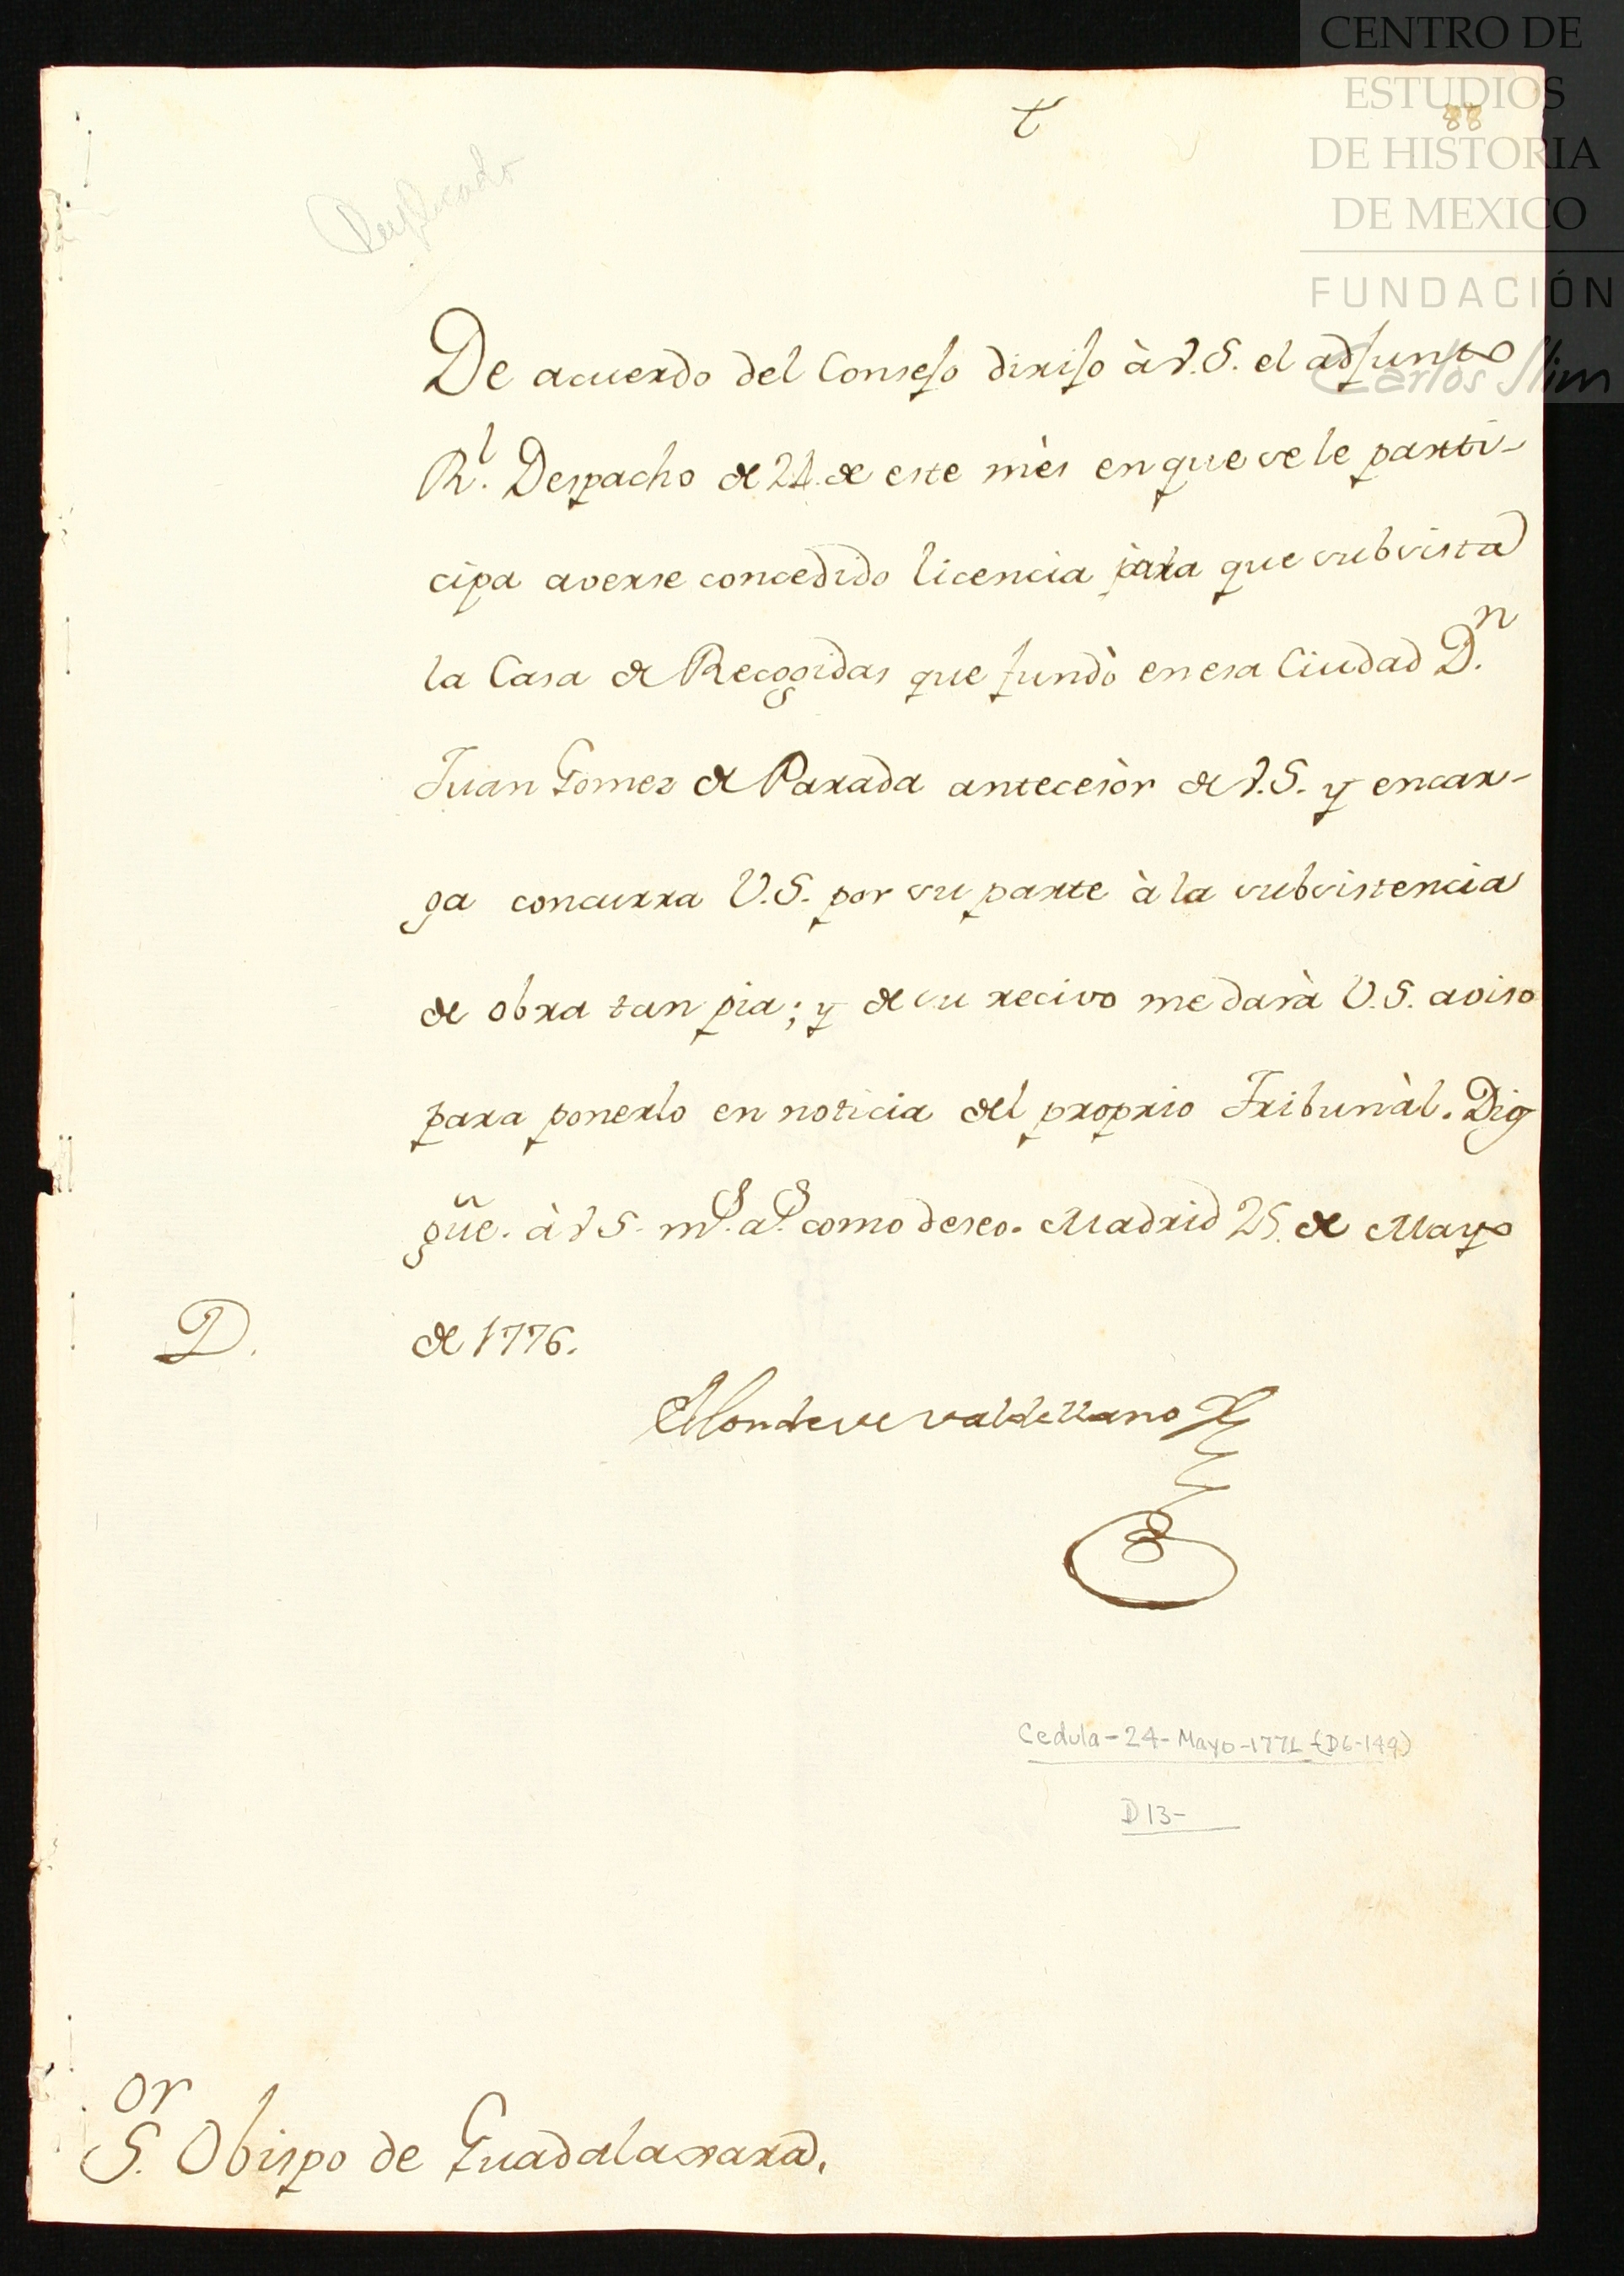 CENTRO DE
ESTUDIOS
DE HISTORIA
DE MEXICO
FUNDACIÓN
Carlos Slim
88
Duplicado
De acuerdo del Consejo dirijo à V.S. el adjunto
Rl. Despacho de 24. de este mès en que se le parti-
cipa averse concedido licencia para que subsista
la Casa de Recogidas que fundò en esa Ciudad Dn.
Juan Gomez de Parada antecesòr de V.S. y encar-
ga concurra V.S. por su parte à la subsistencia
de obra tan pia; y de su recivo me darà V.S. aviso
para ponerlo en noticia del proprio Tribunàl. Dios
gũe. à V S. ms. as. como deseo. Madrid 25. de Mayo
D.
de 1776.
El Conde de Valdellano
Cedula-24-Mayo-1776 (D6-149)
D13-
Sor. Obispo de Guadalaxara.